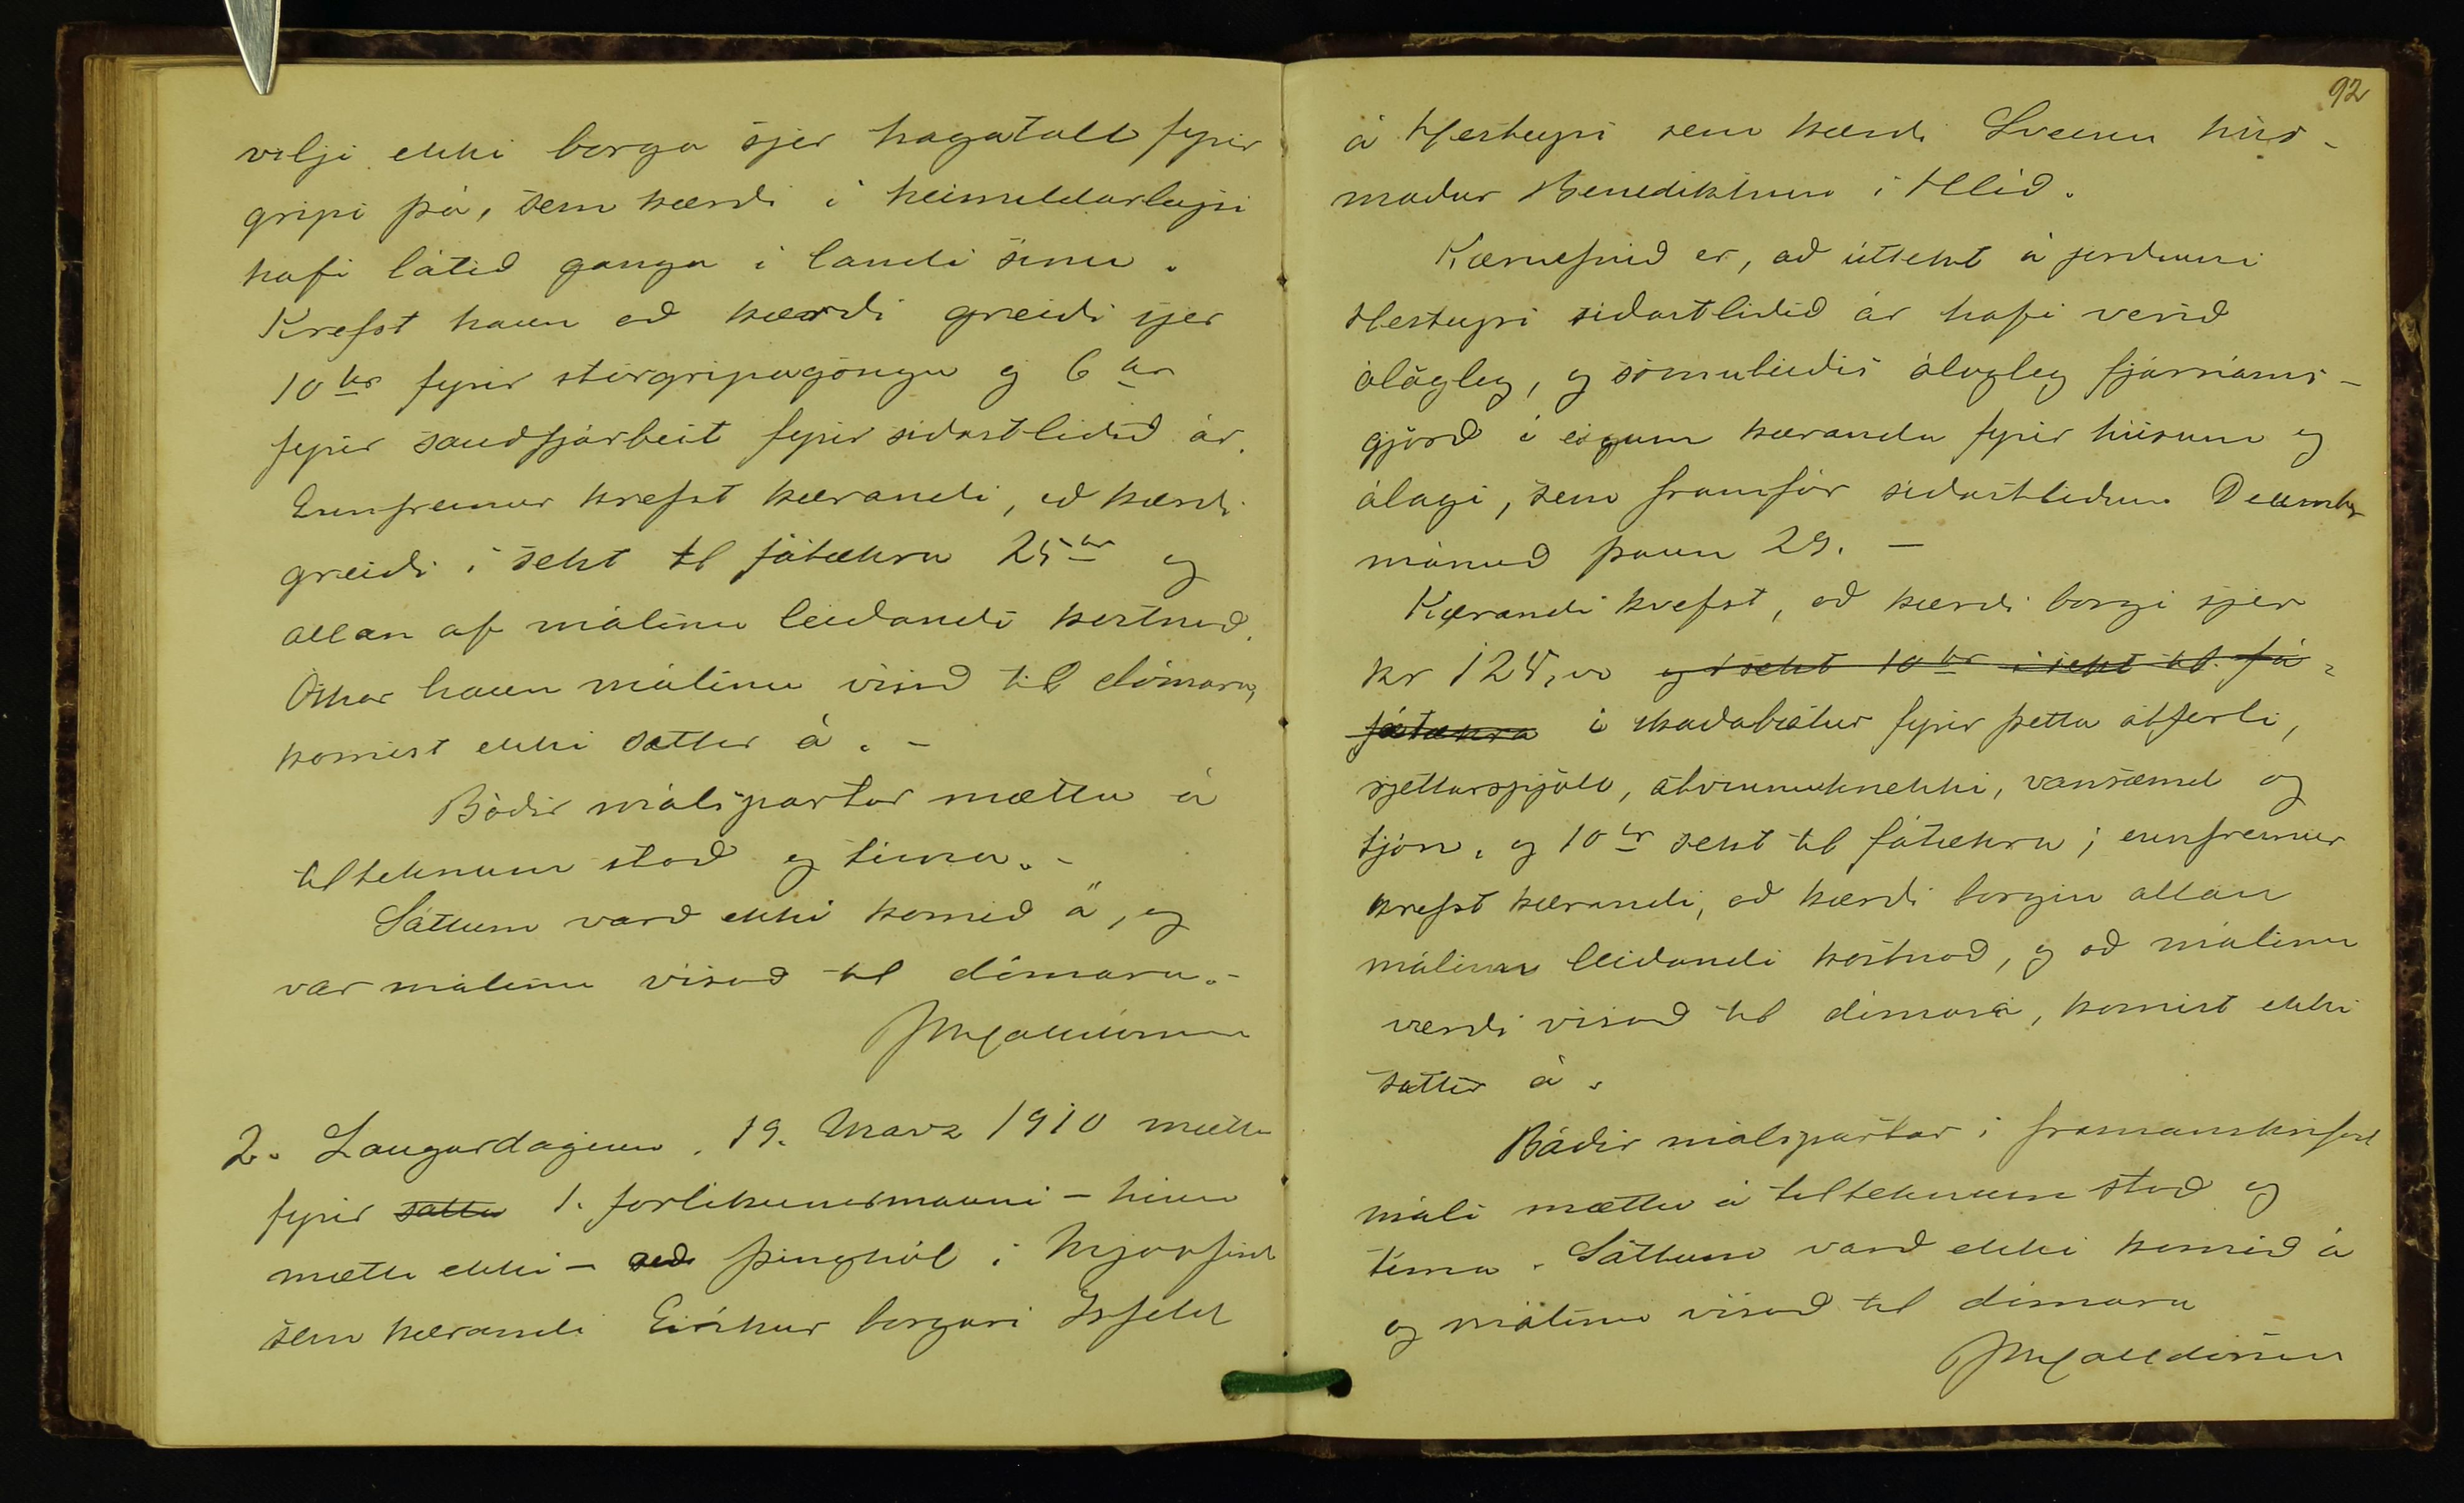 vilji ekki borga sjer hagatoll fyrir
gripi þá, sem kærdi í heimuldarleysi
hafi látið ganga í landi sínu.
Krefst hann að kærdi greiði sjer
10 kr fyrir stórgripagöngu og 6 kr
fyrir sauðfjárbeit fyrir síðastliðið ár.
Ennfremur krefst kærandi, að kærdi
greiði í sekt til fátækra 25 kr og
allan af málinu leiðandi kostnað.
Óskar hann málinu vísað til dómara,
komist ekki sættir á. -
Báðir málspartar mættu á
tilteknum stað og tíma. -
Sáttum varð ekki komið á, og
var málinu vísað til dómara. -
2. Laugardaginn. 19. Marz 1910 mætti
fyrir satta 1. forlikunarmanni - hinn
mætti ekki - að þinghól í Mjóafirði
sem kærandi Eiríkur borgari Isfeld
92
á Hesteyri sem kærdi Sveinn hús-
maður Benediktsson í Hlíð.
Kæruefnið er, að úttekt á jörðunni
Hesteyri síðastliðið ár hafi verið
ólögleg, og sömuleiðis ólögleg fjárnáms-
gjörð í eigum kæranda fyrir húsum og
álagi, sem framfór síðastliðinn December
mánuð þann 29. -
Kærandi krefst, að kærdi borgi sjer
kr 124,00 og í sekt 10 kr í sekt til fá-
fátækra í skaðabætur fyrir þetta atferli,
rjettarspjöll, atvinnuhnekki, vansæmd og
tjón, og 10 kr sekt til fátækra; ennfremur
krefst kærandi, að kærdi borgin allan
málinu leiðandi kostnað, og að málinu
verði vísað til dómara, komist ekki
sættir á.
Báðir málspartar í framanskrifuð
máli mættu á tilteknum stað og
tíma. Sáttum varð ekki komið á
og málinu vísað til dómara